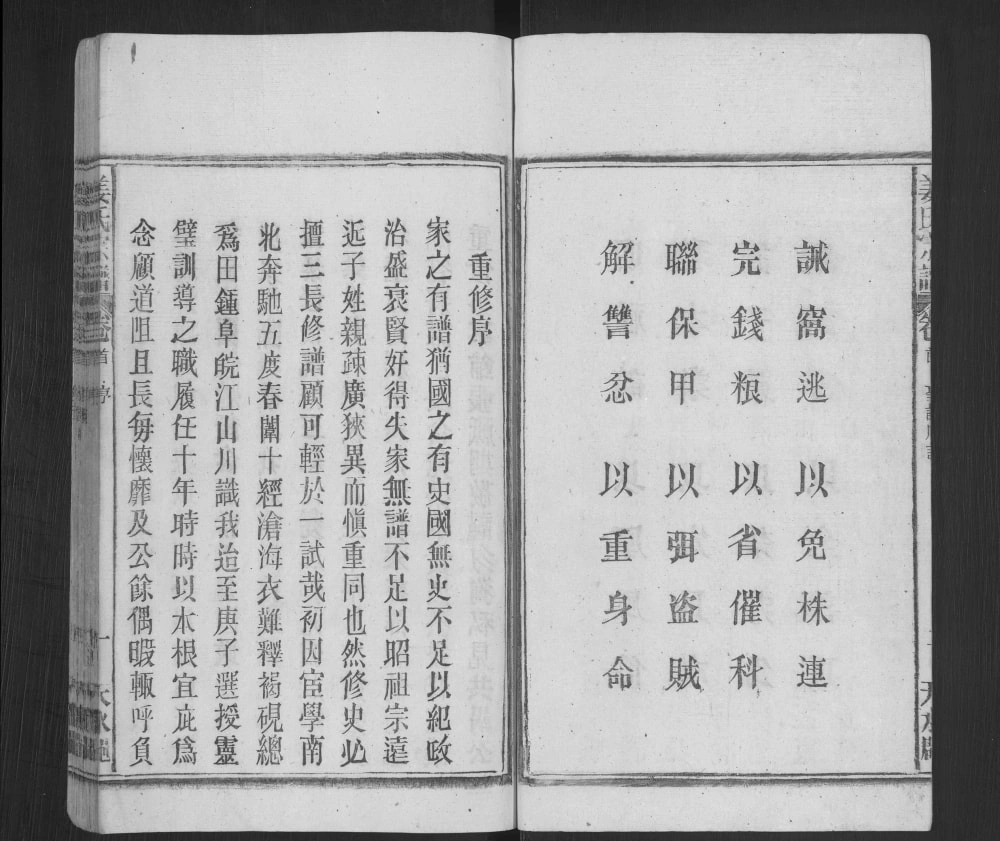 誡窩逃以免株連
完錢粮以省催科
聯保甲以弭盗賊
解讐忿以重身命
重修序
家之有譜猶國之有史國無史不足以紀政
治盛衰賢奸得失家無譜不足以昭祖宗遠
近子姓親疎廣狹異而慎重同也然修史必
擅三長修譜顧可輕於一試哉初因宦學南
北奔馳五度春闈十經滄海衣難釋褐硯總
爲田鍾阜皖江山川識我迨至庚子選授靈
璧訓導之職履任十年時時以木根宜庇爲
念顧道阻且長每懷靡及公餘偶暇輒呼負
姜氏宗譜
卷首
序
一
天水